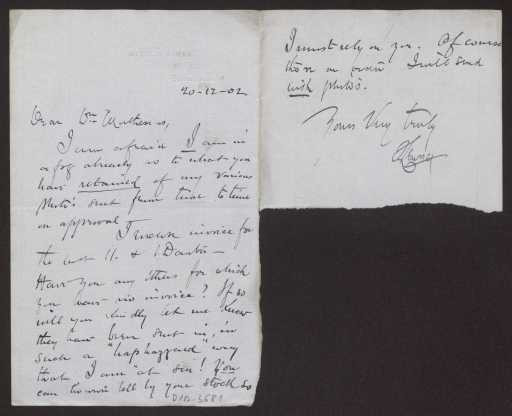 20-12-02
Dear Mr Mathews,
I am afraid I am in
a fog already as to what you
have retained of my various
photo's sent from time to time
on approval
I enclose invoice for
the last 11. & 1 Dante's —
Have you any others for which
you have no invoice? If so
will you kindly let me know
they have been sent in, in
such a "haphazard" way
that I am "at sea"! You
can however tell by your stock so
D1B-3681
I must rely on you. Of course
those on order I will send
with photo's.
Yours Very truly